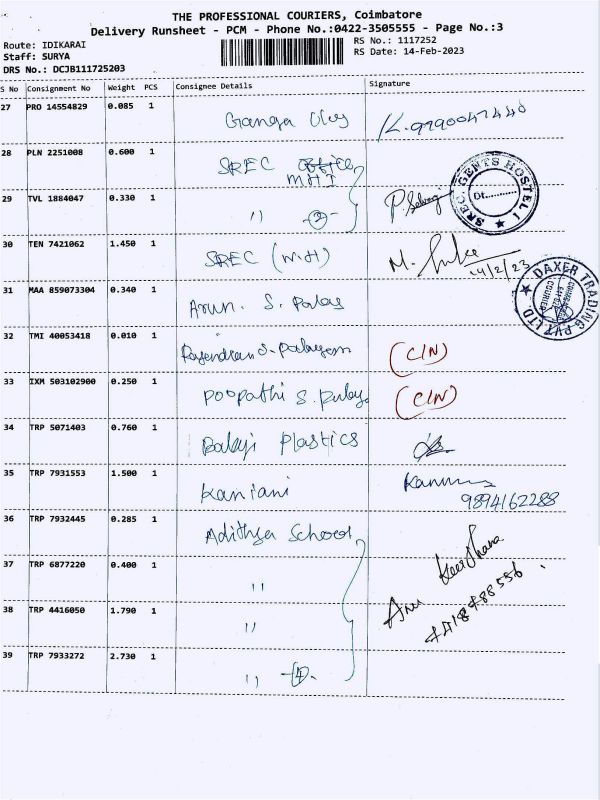 THE PROFESSIONAL COURIERS, Coimbatore
Delivery Runsheet - PCM - Phone No.:0422-3505555 - Page No.:3
Route: IDIKARAI
RS No.: 1117252
Staff: SURYA
RS Date: 14-Feb-2023
DRS No.: DCJB111725203
S No Consignment No Weight PCS Consignee Details Signature
27 PRO 14554829 0.085 1 Ganga
28 PLN 2251008 0.600 1 SREC Office
MHI
29 TVL 1884047 0.330 1 ,,
SREC. GENTS HOSTEL I
Dt...........
30 TEN 7421062 1.450 1 SREC (M.H) M.
14/2/23
DAXER TRADING PVT LTD.
COURIER
31 MAA 859073304 0.340 1 Arun. S. Palay
32 TMI 40053418 0.010 1 Rajendran S. Palayam (C/N)
33 IXM 503102900 0.250 1 Poopathi S. Palay (C/N)
34 TRP 5071403 0.760 1 Balaji Plastics
35 TRP 7931553 1.500 1 Kaniani
9894162288
36 TRP 7932445 0.285 1 Adithya School
37 TRP 6877220 0.400 1 ,,
38 TRP 4416050 1.790 1 ,,
39 TRP 7933272 2.730 1 ,, (4)